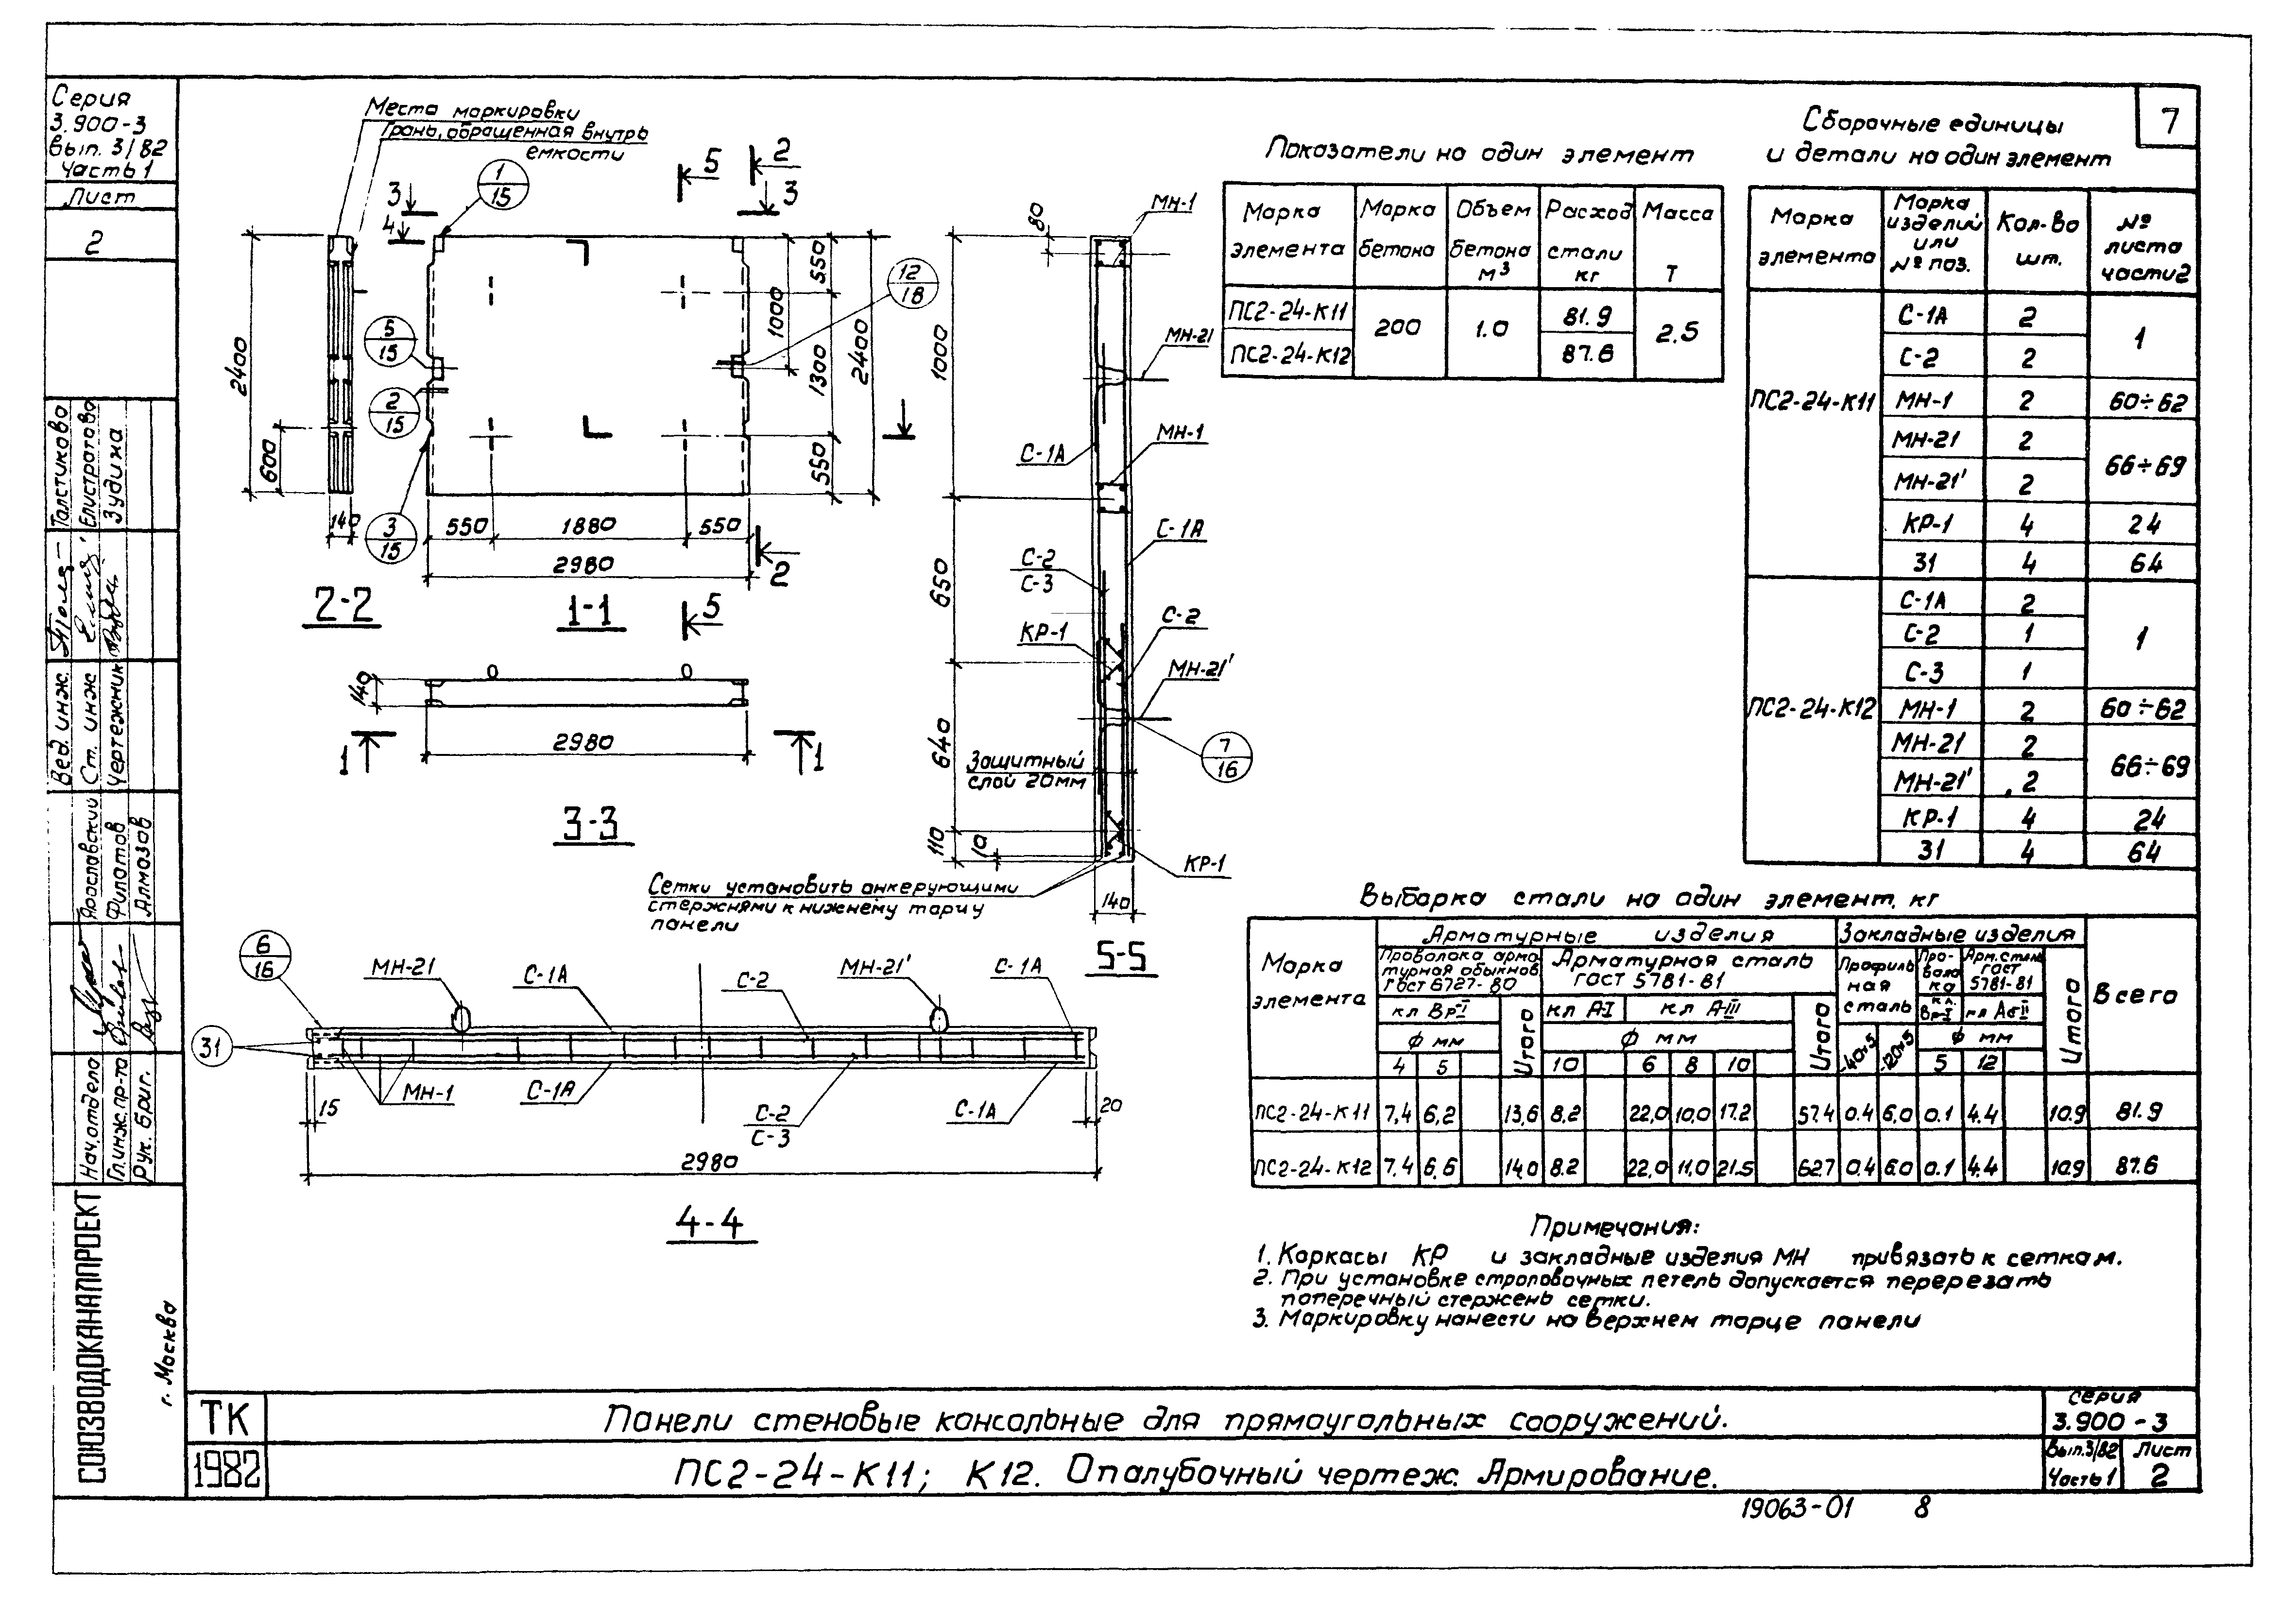 Серия
3.900-3
вып. 3/82
Часть 1
Лист
2
Толстикова
Елистратова
Зудина
Вед. инж.
Ст. инж
Чертежник
Ярославский
Филатов
Алмазов
Нач. отдела
Гл.инж.пр-та
Рук. бриг.
СОЮЗВОДОКАНАЛПРОЕКТ
г. Москва
Места маркировки
Грань, обращенная внутрь
емкости
2400
600
140
2-2
1
15
5
15
2
15
3
15
12
18
3
4
5
2
3
550
1000
1300
2400
550
550
1880
550
2980
1-1
2
5
140
2980
1
1
3-3
80
1000
1000
650
640
110
10
140
МН-1
МН-21
С-1А
МН-1
С-1А
С-2
С-3
КР-1
С-2
МН-21'
7
16
Защитный
слой 20мм
КР-1
Сетки установить анкерующими
стержнями к нижнему торцу
панели
5-5
6
16
МН-21
С-1А
С-2
МН-21'
С-1А
31
МН-1
С-1А
С-2
С-3
С-1А
15
20
2980
4-4
7
Показатели на один элемент
Марка элемента | Марка бетона | Объем бетона м³ | Расход стали кг | Масса т
ПС2-24-К11 | 200 | 1.0 | 81.9 | 2.5
ПС2-24-К12 | 87.6
Сборочные единицы
и детали на один элемент
Марка элемента | Марка изделий или № поз. | Кол-во шт. | № листа части 2
ПС2-24-К11
С-1А | 2 | 1
С-2 | 2
МН-1 | 2 | 60÷62
МН-21 | 2 | 66÷69
МН-21' | 2
КР-1 | 4 | 24
31 | 4 | 64
ПС2-24-К12
С-1А | 2 | 1
С-2 | 1
С-3 | 1
МН-1 | 2 | 60÷62
МН-21 | 2 | 66÷69
МН-21' | 2
КР-1 | 4 | 24
31 | 4 | 64
Выборка стали на один элемент, кг
Марка элемента | Арматурные изделия | Закладные изделия | Всего
Проволока арматурная обыкнов ГОСТ 6727-80 | Арматурная сталь ГОСТ 5781-81 | Профильная сталь | Проволока | Арм. сталь ГОСТ 5781-81 | Итого
кл Вр-I | Итого | кл А-I | кл А-III | Итого | кл. Вр-I
ф мм | ф мм | ф мм
4 | 5 | 10 | 6 | 8 | 10 | -40×5 | -120×5 | 5 | 12
ПС2-24-К11 | 7,4 | 6,2 | 13,6 | 8.2 | 22,0 | 10,0 | 17.2 | 57.4 | 0.4 | 6,0 | 0.1 | 4.4 | 10.9 | 81.9
ПС2-24-К12 | 7,4 | 6,6 | 14,0 | 8.2 | 22,0 | 11,0 | 21.5 | 62.7 | 0.4 | 6.0 | 0.1 | 4.4 | 10.9 | 87.6
Примечания:
1. Каркасы КР и закладные изделия МН привязать к сеткам.
2. При установке строповочных петель допускается перерезать
поперечный стержень сетки.
3. Маркировку нанести на верхнем торце панели
ТК
1982
Панели стеновые консольные для прямоугольных сооружений.
ПС2-24-К11; К12. Опалубочный чертеж. Армирование.
серия
3.900-3
Вып.3/82
Часть 1
Лист
2
19063-01 8